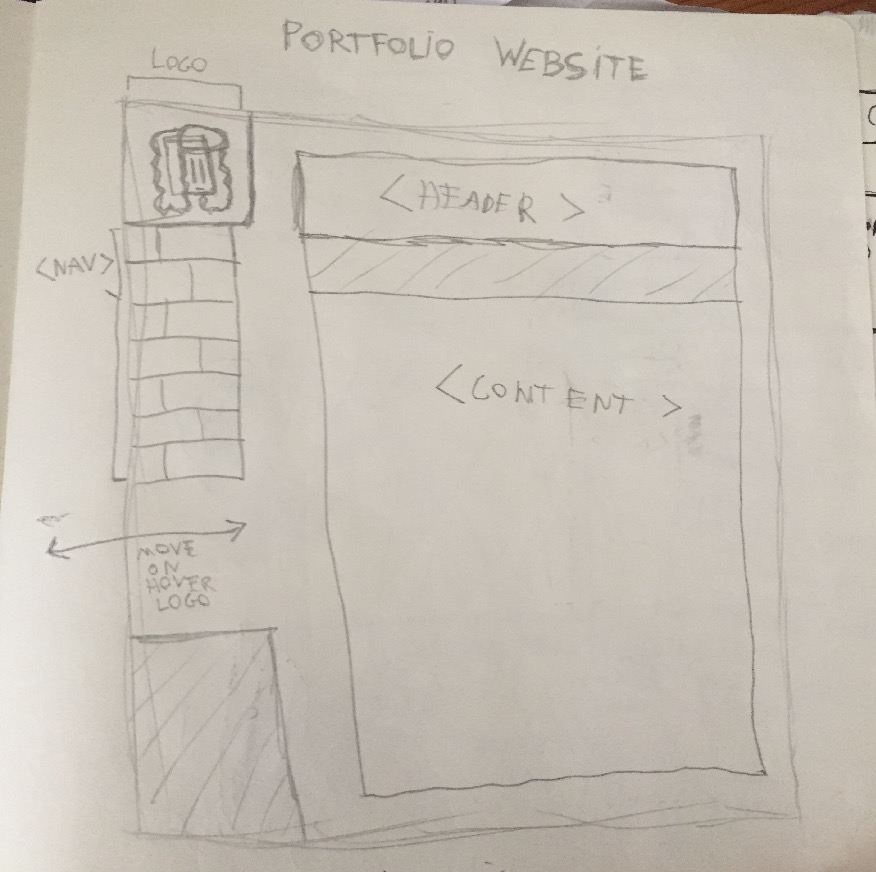 PORTFOLIO WEBSITE
LOGO
<HEADER>
<NAV>
<CONTENT>
MOVE
ON
HOVER
LOGO